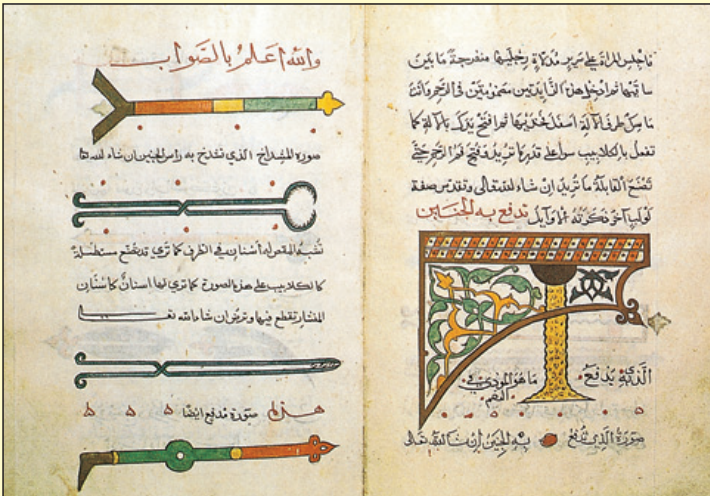 فاجلس المراة على سرير مدلاة رجليها منفرجة ما بين
ساقيها ثم ادخل هذه الزايدتين مجموعتين في الرحم وانت
ماسك طرف الآلة اسفل فخذيها ثم افتح يدك بالآلة كما
تفعل بالكلاليب سوا على قدر ما تريد وفتح فم الرحم حتى
تصنع القابلة ما تريد ان شاء الله تعالى وتقدس صفة
لولب آخر ذكرته الاوايل تدفع به الجنين
الذي يدفع ما هو المؤذي في
صورة الذي تدفع به الجنين إن شا الله تعالى
والله اعلم بالصواب
صورة المشداخ الذي تشدخ به راس الجنين ان شاء الله
تشبه المقص له أسنان في الطرف كما ترى قد تصنع مستطيلة
كالكلاليب على هذه الصورة كما ترى لها اسنان كأسنان
المنشار تقطع فيها وترض ان شاء الله
هذه صورة مدفع ايضا